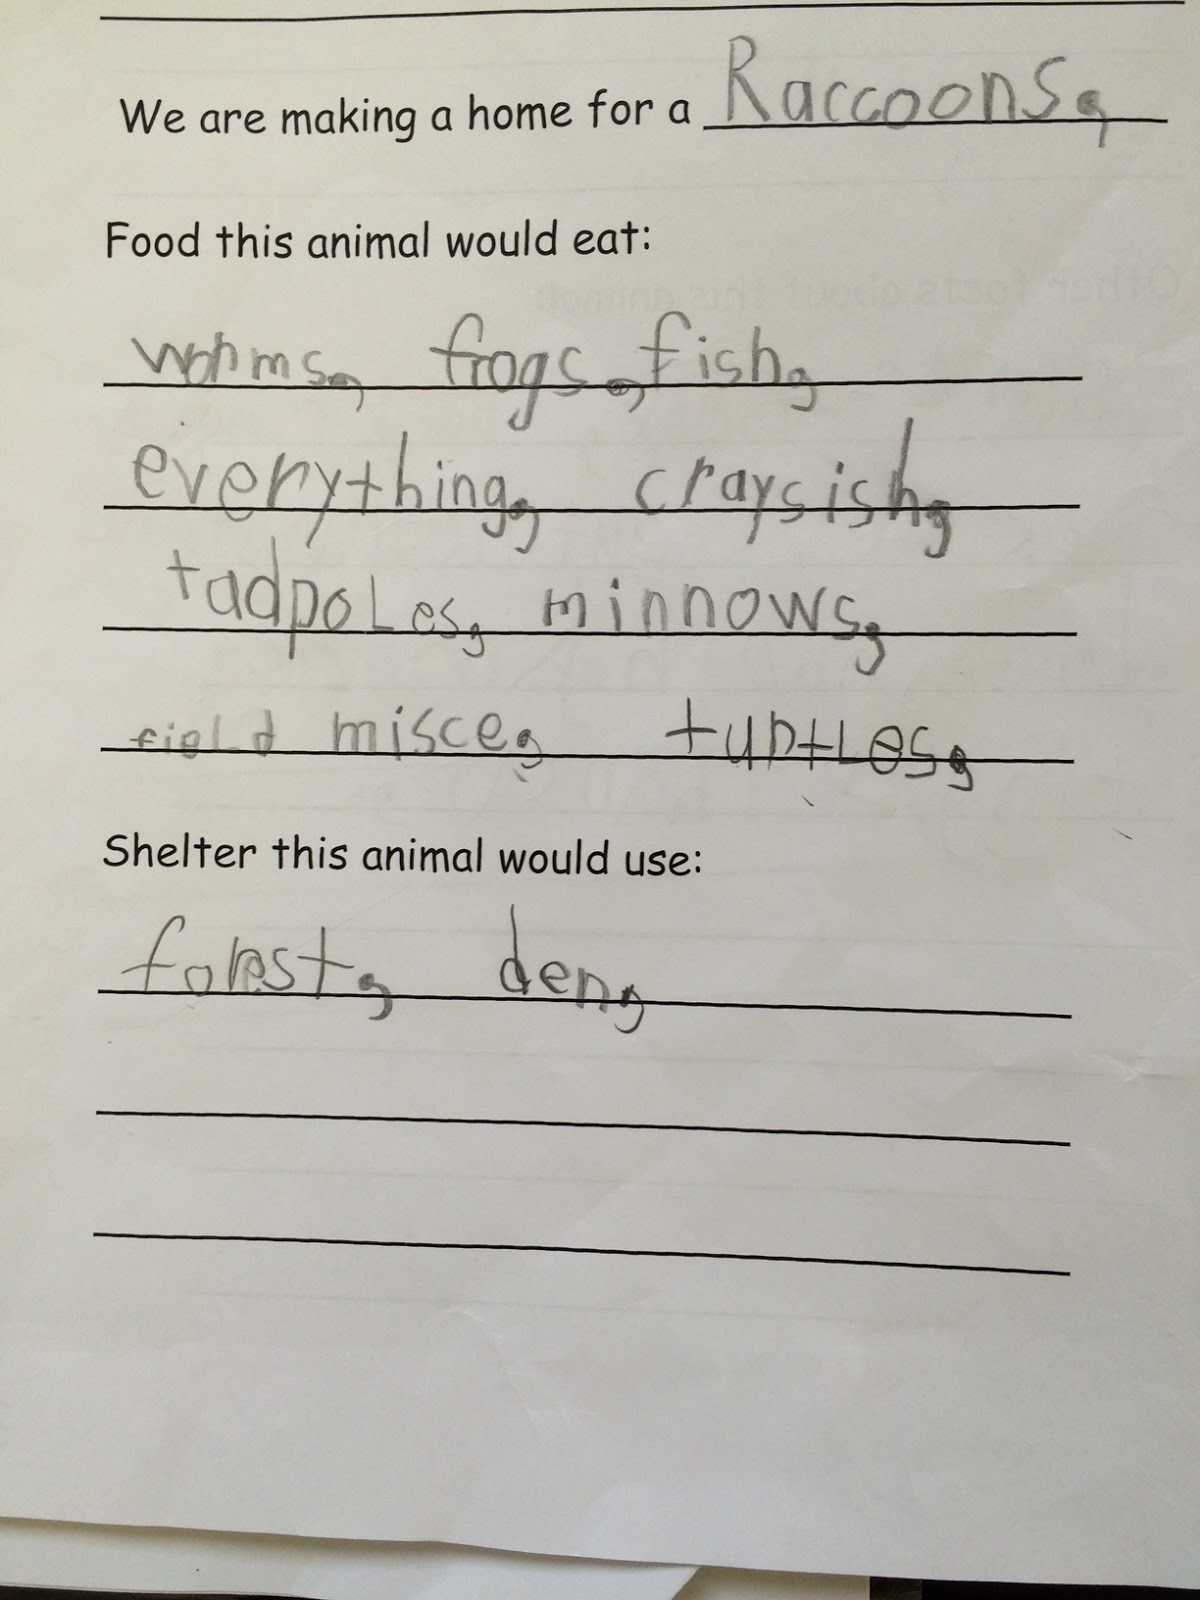 We are making a home for a Raccoons,
Food this animal would eat:
worms, frogs, fish,
everything, craysish,
tadpoLes, minnows,
field misce, turtLes,
Shelter this animal would use:
forest, den,